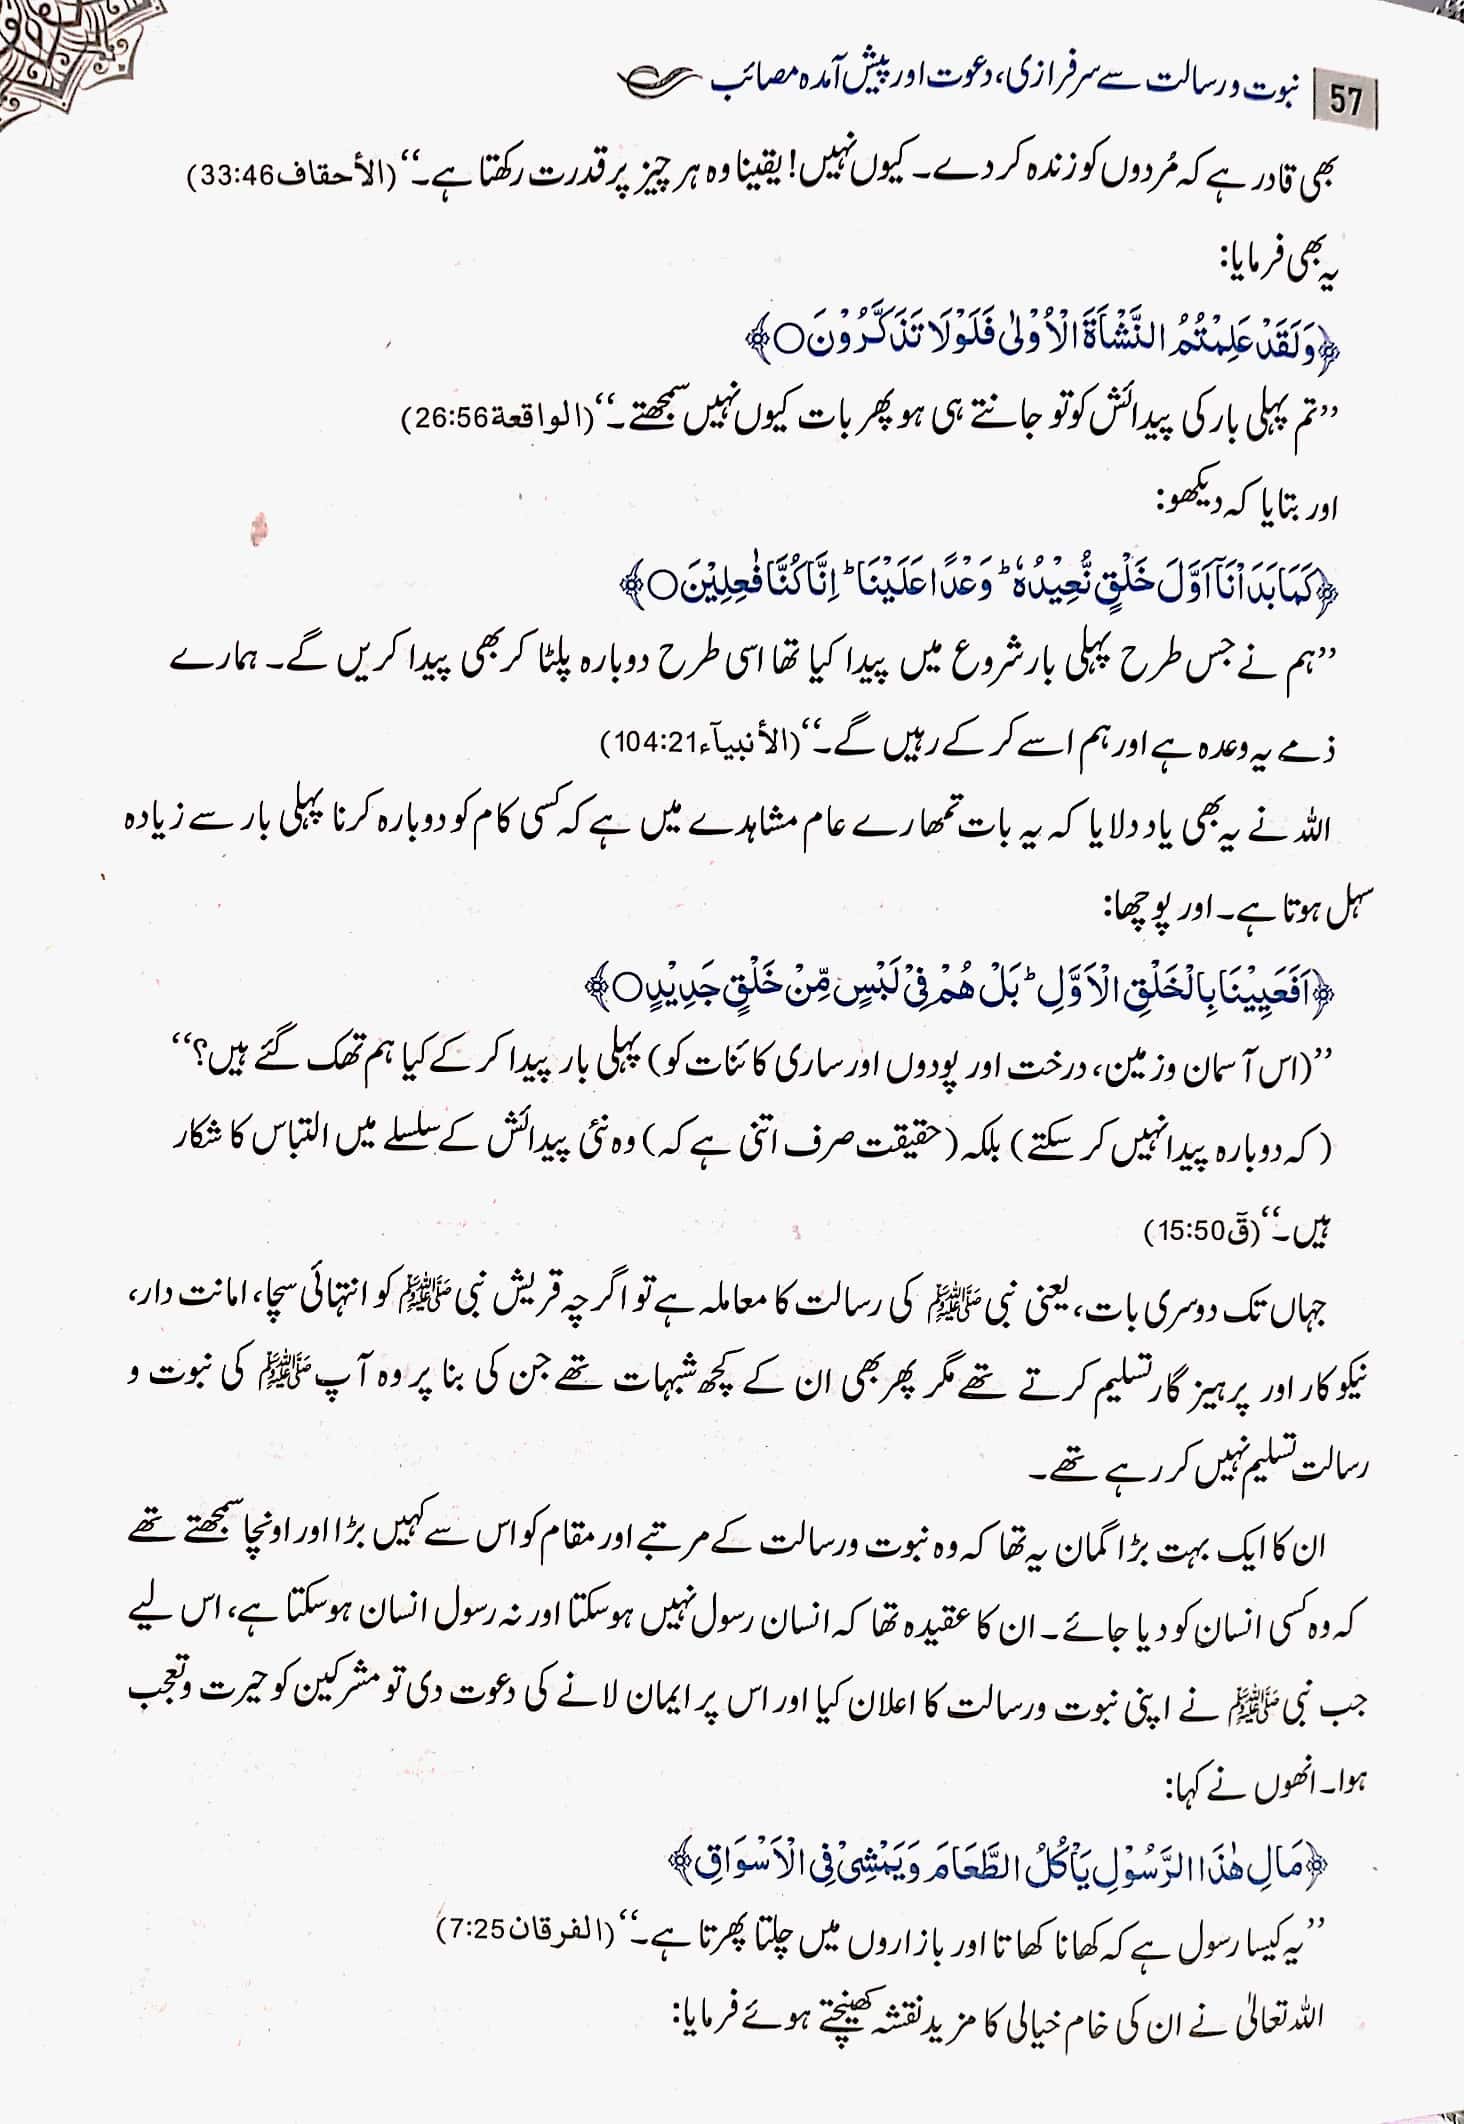 57 نبوت و رسالت سے سرفرازی، دعوت اور پیش آمدہ مصائب
بھی قادر ہے کہ مُردوں کو زندہ کر دے۔ کیوں نہیں! یقینا وہ ہر چیز پر قدرت رکھتا ہے۔‘‘ (الأحقاف 33:46)
یہ بھی فرمایا:
﴿وَلَقَدْ عَلِمْتُمُ النَّشْاَةَ الْاُوْلٰى فَلَوْلَا تَذَكَّرُوْنَ○﴾
’’تم پہلی بار کی پیدائش کو تو جانتے ہی ہو پھر بات کیوں نہیں سمجھتے۔‘‘ (الواقعة 26:56)
اور بتایا کہ دیکھو:
﴿كَمَا بَدَاْنَاۤ اَوَّلَ خَلْقٍ نُّعِيْدُهٗ ؕ وَعْدًا عَلَيْنَا ؕ اِنَّا كُنَّا فٰعِلِيْنَ○﴾
’’ہم نے جس طرح پہلی بار شروع میں پیدا کیا تھا اسی طرح دوبارہ پلٹا کر بھی پیدا کریں گے۔ ہمارے
ذمے یہ وعدہ ہے اور ہم اسے کر کے رہیں گے۔‘‘ (الأنبیآء 104:21)
اللہ نے یہ بھی یاد دلایا کہ یہ بات تمھارے عام مشاہدے میں ہے کہ کسی کام کو دوبارہ کرنا پہلی بار سے زیادہ
سہل ہوتا ہے۔ اور پوچھا:
﴿اَفَعَيِيْنَا بِالْخَلْقِ الْاَوَّلِ ؕ بَلْ هُمْ فِيْ لَبْسٍ مِّنْ خَلْقٍ جَدِيْدٍ○﴾
’’(اس آسمان و زمین، درخت اور پودوں اور ساری کائنات کو) پہلی بار پیدا کر کے کیا ہم تھک گئے ہیں؟‘‘
(کہ دوبارہ پیدا نہیں کر سکتے) بلکہ (حقیقت صرف اتنی ہے کہ) وہ نئی پیدائش کے سلسلے میں التباس کا شکار
ہیں۔‘‘ (قٓ 15:50)
جہاں تک دوسری بات، یعنی نبی ﷺ کی رسالت کا معاملہ ہے تو اگرچہ قریش نبی ﷺ کو انتہائی سچا، امانت دار،
نیکو کار اور پرہیز گار تسلیم کرتے تھے مگر پھر بھی ان کے کچھ شبہات تھے جن کی بنا پر وہ آپ ﷺ کی نبوت و
رسالت تسلیم نہیں کر رہے تھے۔
ان کا ایک بہت بڑا گمان یہ تھا کہ وہ نبوت و رسالت کے مرتبے اور مقام کو اس سے کہیں بڑا اور اونچا سمجھتے تھے
کہ وہ کسی انسان کو دیا جائے۔ ان کا عقیدہ تھا کہ انسان رسول نہیں ہوسکتا اور نہ رسول انسان ہوسکتا ہے، اس لیے
جب نبی ﷺ نے اپنی نبوت و رسالت کا اعلان کیا اور اس پر ایمان لانے کی دعوت دی تو مشرکین کو حیرت و تعجب
ہوا۔ انھوں نے کہا:
﴿مَالِ هٰذَا الرَّسُوْلِ يَاْكُلُ الطَّعَامَ وَيَمْشِيْ فِي الْاَسْوَاقِ﴾
’’یہ کیسا رسول ہے کہ کھانا کھاتا اور بازاروں میں چلتا پھرتا ہے۔‘‘ (الفرقان 7:25)
اللہ تعالیٰ نے ان کی خام خیالی کا مزید نقشہ کھینچتے ہوئے فرمایا: